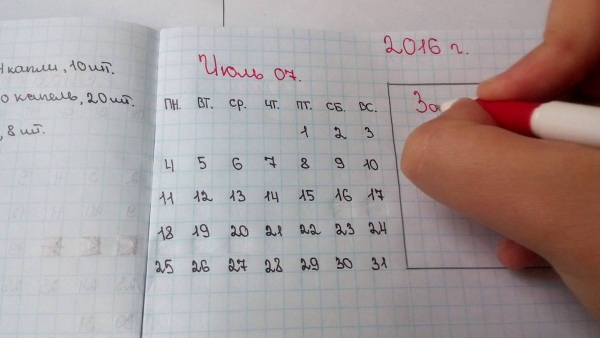 капли, 10 шт.
капель, 20 шт.
, 8 шт.
2016 г.
Июль 07.
ПН. ВТ. СР. ЧТ. ПТ. СБ. ВС.
1 2 3
4 5 6 7 8 9 10
11 12 13 14 15 16 17
18 19 20 21 22 23 24
25 26 27 28 29 30 31
За